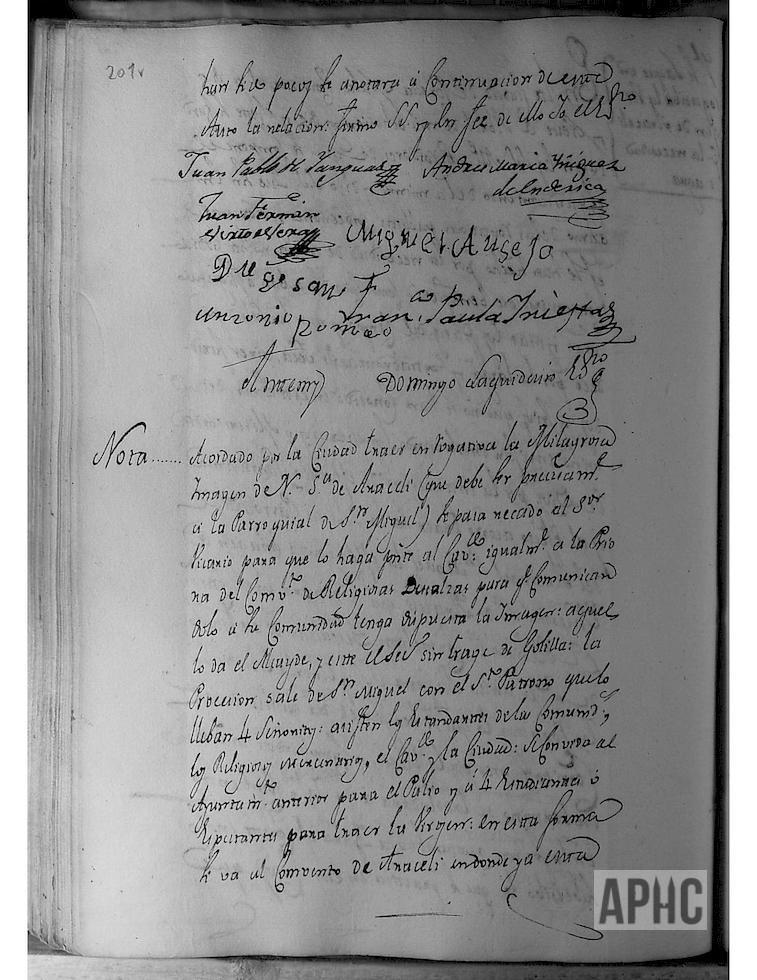 201v
han de pocos se anotara a Continuacion de este
Auto la relacion: firmo SS. y en fee de ello Yo el Ssno
Juan Pablo de Andres Maria Yñiguez
de Enderica
Juan Fermin
Virto de Vera Miguel Ausejo
Antonio Romeo Fran.co Paula Iniestas
Ante my Domingo Ssno
Nota...... Acordado por la Ciudad traer en rogativa la Milagrosa
Imagen de N.a S.ra de Araceli (que debe ser precisam.te
a la Parroquial de S.n Miguel) se pasa recado al S.or
Vicario para que lo haga pnte al Cav.do igualm.te a la Prio
ra del Conv.to de Religiosas Descalzas para q.e Comunican
dolo a su Comunidad tenga dispuesta la Imagen: aquel
lo da el Alcayde, y este el Sec.o sin trage de Golilla: la
Procesion sale de S.n Miguel con el S.to Patrono que lo
lleban 4 Señoritos: asisten los Estandartes de las Comunid.s y
los Religiosos Mercenarios, el Cav.do y la Ciudad: se Convida al
Ayuntam.to anterior para el Palio y a 4 Estudiantes o
Diputantes para traer la Virgen: en esta forma
se va al Convento de Araceli en donde ya esta
APHC